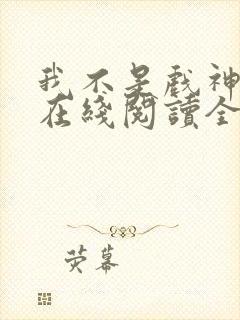 我不是戏神
在綫閱讀全
荧幕